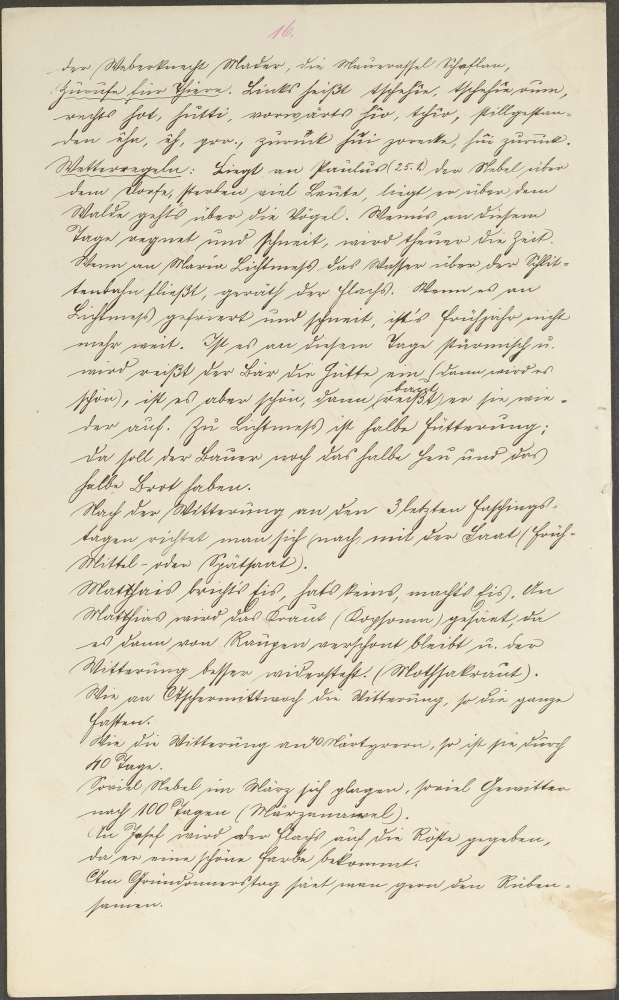 16.
der Weberknecht Mader, die Mauerassel Schaflan,
Zurufe für Thiere. Links heißt tschehie, tschehie rum,
rechts hot, hutti, vorwärts hio, tchio, stillgestan-
den öha, eh, prr., zurück hui zurecke, hui zurück.
Wetterregeln: Liegt an Paulus (25.1.) der Nebel über
dem Dorfe, sterben viel Leute, liegt er über dem
Walde geht's über die Vögel. Wenn's an diesem
Tage regnet und schneit, wird theuer die Zeit.
Wenn an Maria Lichtmeß das Wasser über der Schlit-
tenbahn fließt, geräth der Flachs. Wenn es an
Lichtmeß gefriert und schneit, ist's Frühjahr nicht
mehr weit. Ist es an diesem Tage stürmisch u.
wird reißt der Bär die Hütte ein (dann wird es
schön), ist es aber schön, dann baut er sie wie-
der auf. Zu Lichtmeß ist halbe Fütterung;
da soll der Bauer noch das halbe Heu und das
halbe Brot haben.
Nach der Witterung an den 3 letzten Faschings-
tagen richtet man sich nach mit der Saat (Früh-
Mittel- oder Spätsaat).
Matthais bricht's Eis, hats keins, macht's Eis. An
Matthias wird das Kraut (Kopsomn) gesäet, da
es dann von Raupen verschont bleibt u. der
Witterung besser widersteht. (Mothsakraut).
Wie an Aschermittwoch die Witterung, so die ganze
Fasten.
Wie die Witterung an 40 Märtyrern, so ist sie durch
40 Tage.
Soviel Nebel im März sich plagen, soviel Gewitter
nach 100 Tagen (Märzanawel).
An Josef wird der Flachs auf die Röste gegeben,
da er eine schöne Farbe bekommt.
Am Gründonnerstag säet man gern den Rüben-
samen.